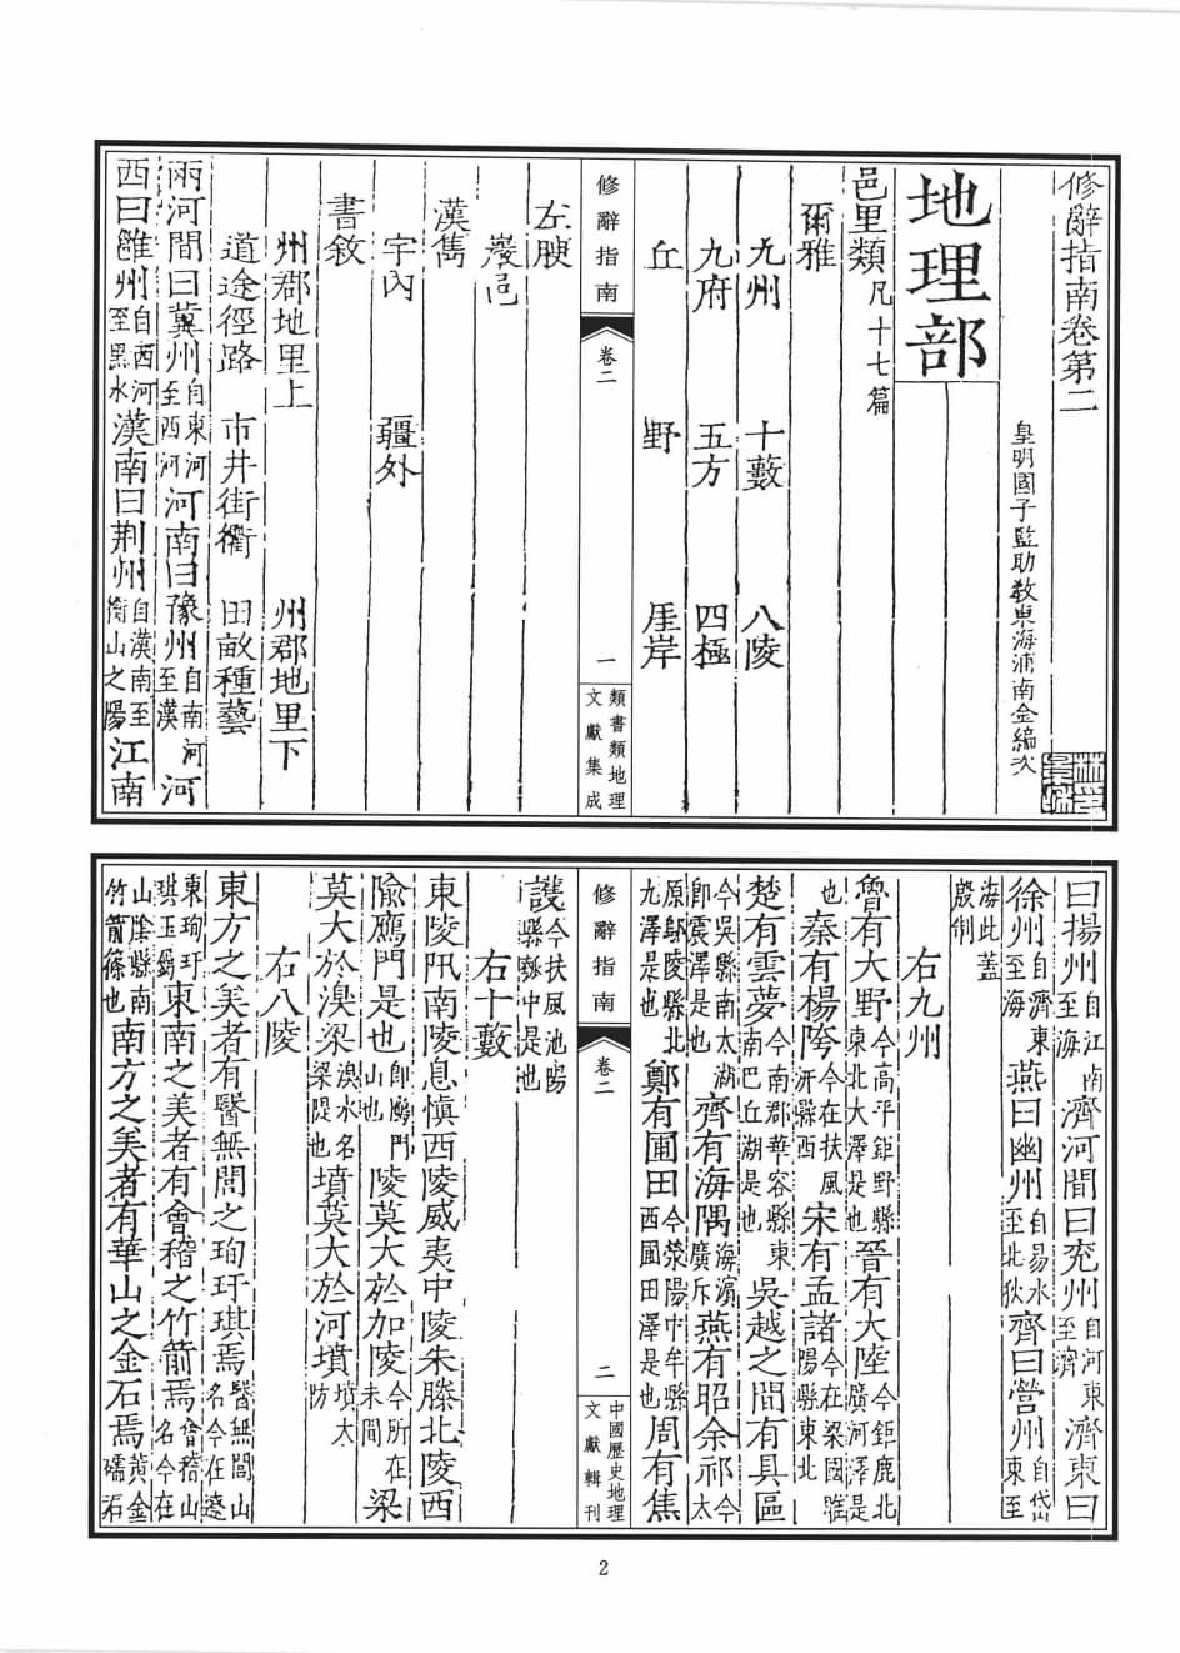 修辭指南卷第二
皇明國子監助教東海浦南金編次
地理部
邑里類凡十七篇
爾雅
九州 十藪 八陵
九府 五方 四極
丘 野 厓岸
修辭指南 卷二 一
類書類地理
文獻集成
左腴
巖邑
漢雋
宇內 疆外
書敘
州郡地里上 州郡地里下
道途徑路 市井街衢 田畝種藝
兩河間曰冀州自東河至西河河南曰豫州自南河至漢河
西曰雝州自西河至黑水漢南曰荆州自漢南至衡山之陽江南
曰揚州自江南至海濟河間曰兖州自河東至濟濟東曰
徐州自濟東至海燕曰幽州自易水至北狄齊曰營州自岱東至
海此蓋殷制
右九州
魯有大野今高平鉅野縣東北大澤是也晉有大陸今鉅鹿北廣河澤是
也秦有楊陓今在扶風汧縣西宋有孟諸今在梁國睢陽縣東北
楚有雲夢今南郡華容縣東南巴丘湖是也吳越之間有具區
今吳縣南太湖卽震澤是也齊有海隅海濵廣斥燕有昭余祁今太
原鄔陵縣北九澤是也鄭有圃田今滎陽中牟縣西圃田澤是也周有焦
修辭指南 卷二 二
中國歷史地理
文獻輯刊
護今扶風池陽縣瓠中是也
右十藪
東陵阠南陵息愼西陵威夷中陵朱滕北陵西
隃鴈門是也卽鴈門山也陵莫大於加陵今所在未聞梁
莫大於湨梁湨水名梁隄也墳莫大於河墳墳大防
右八陵
東方之美者有醫無閭之珣玗琪焉醫無閭山名今在遼
東珣玗琪玉屬東南之美者有會稽之竹箭焉會稽山名今在
山陰縣南竹箭篠也南方之美者有華山之金石焉黃金礝石
2